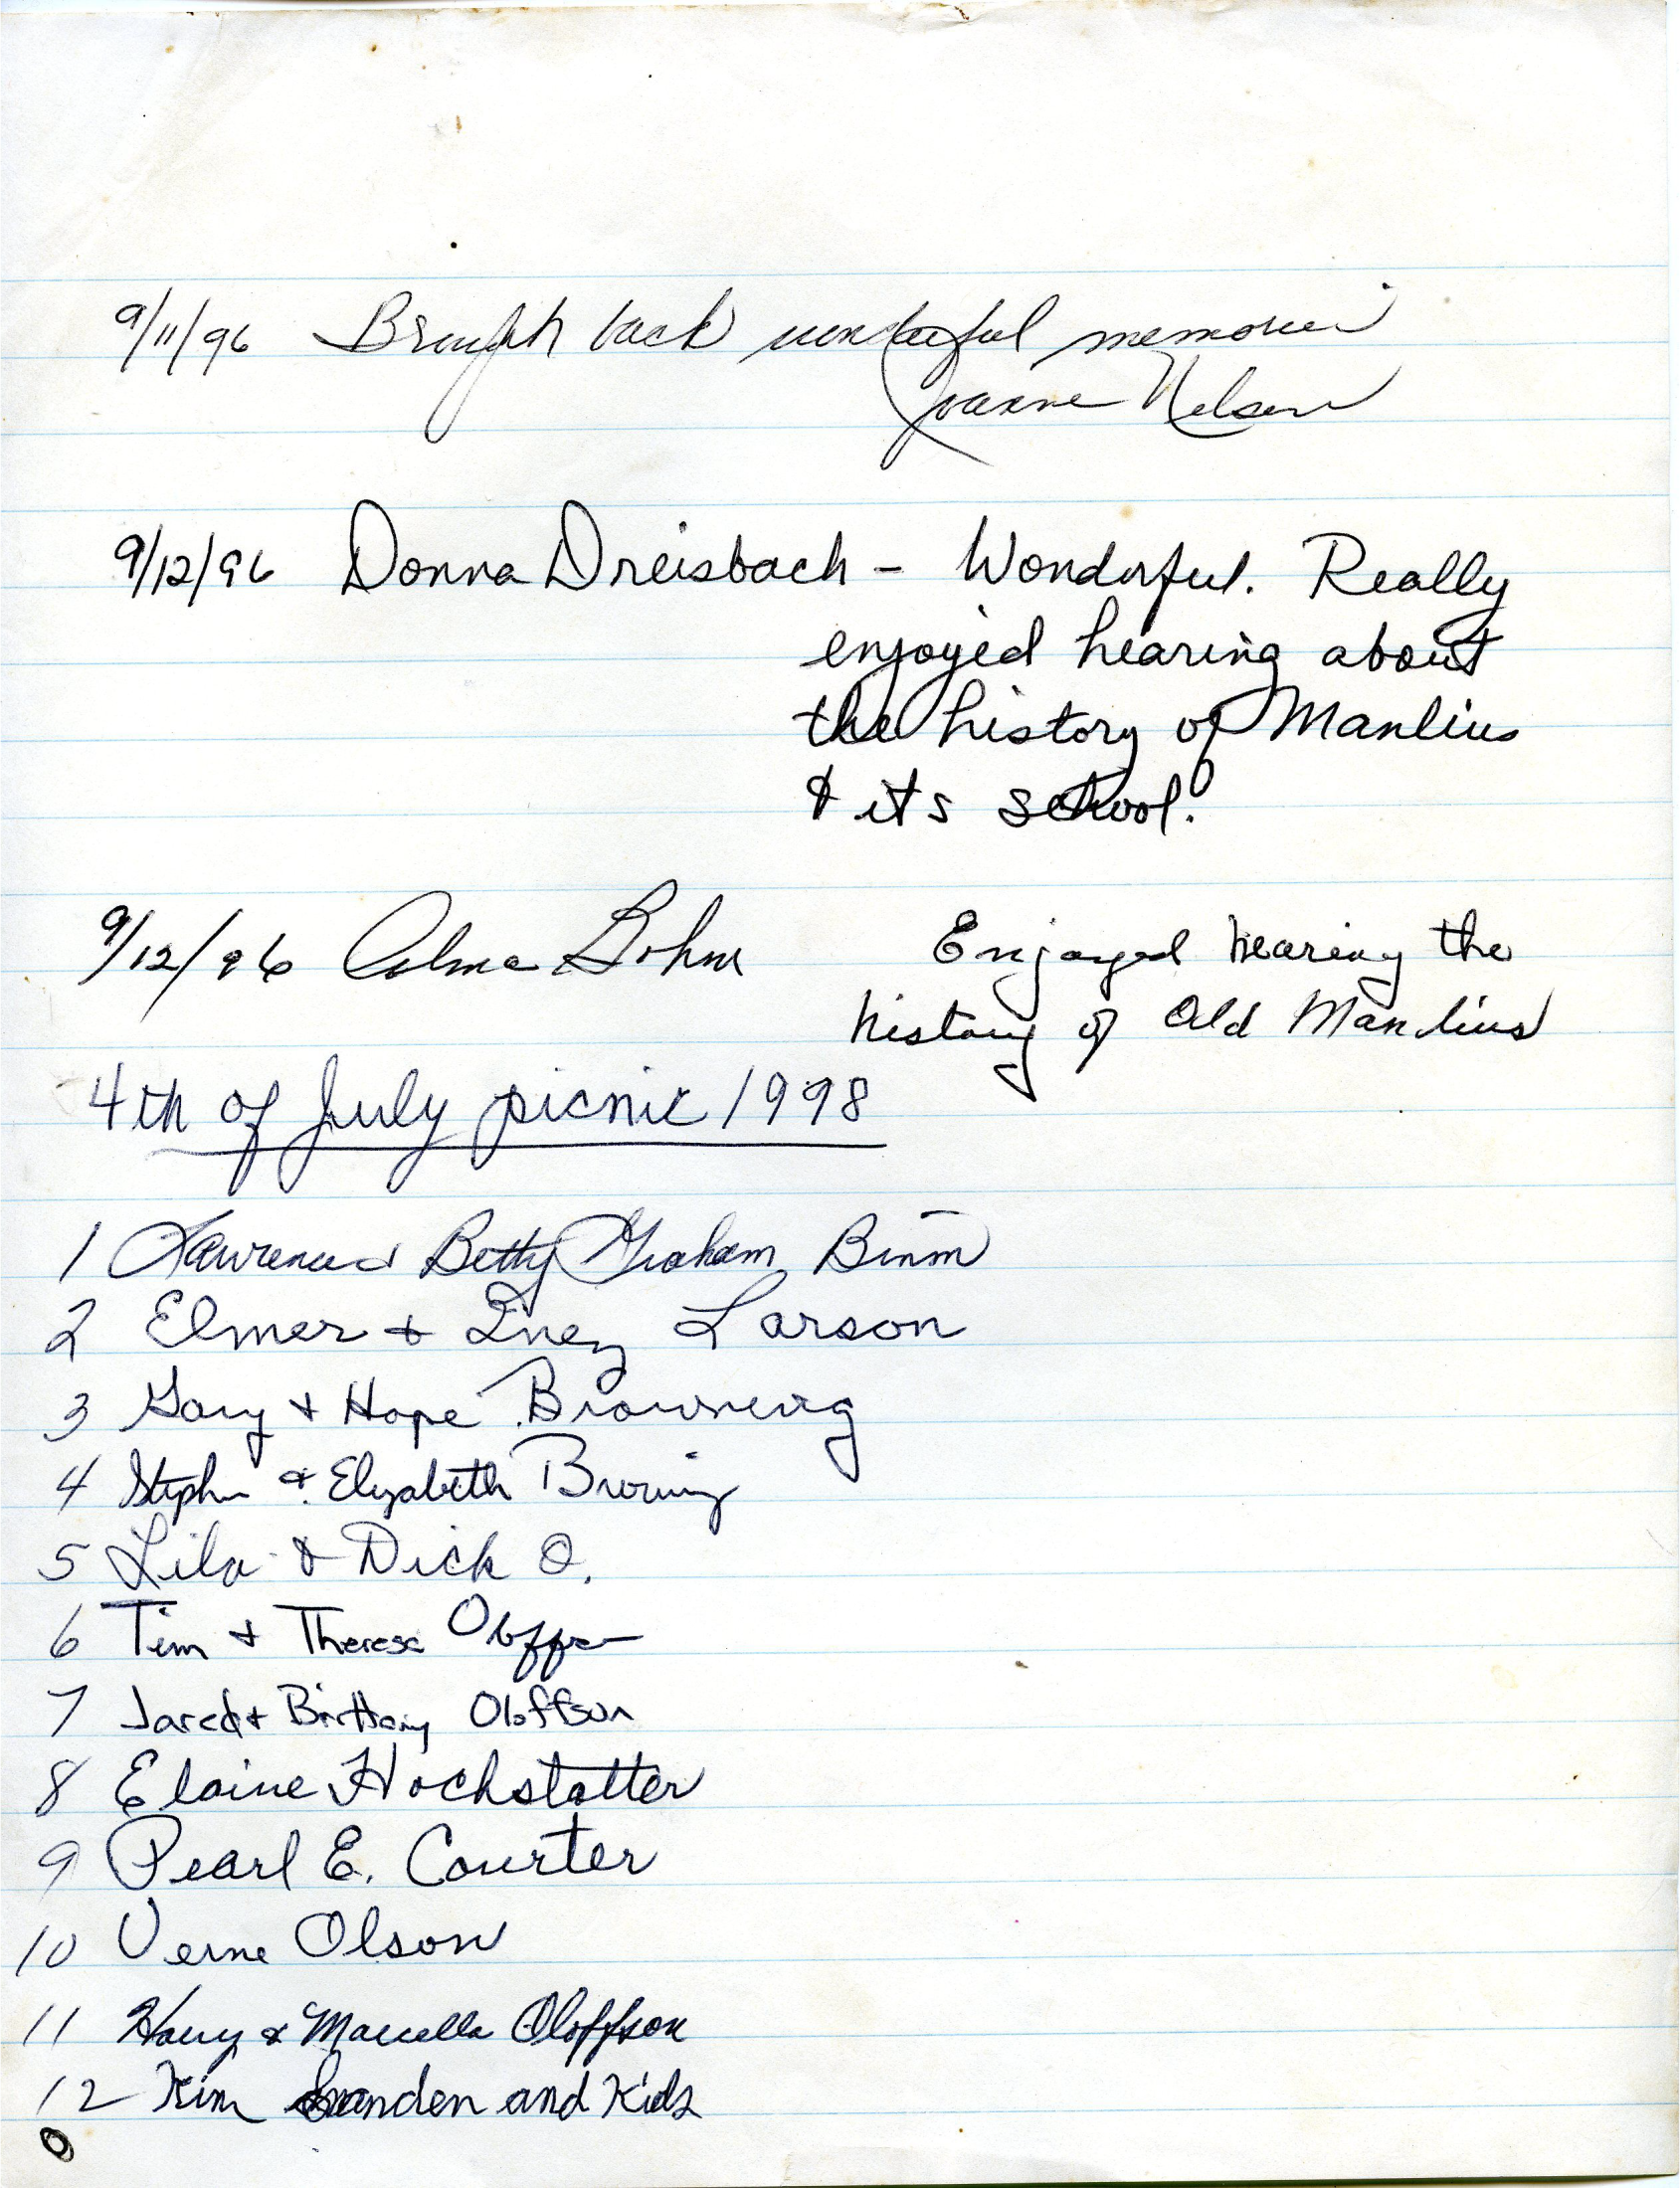 9/11/96 Brought back wonderful memories
Joanne Nelson
9/12/96 Donna Dreisbach - Wonderful. Really
enjoyed hearing about
the history of Manlius
& its school!
9/12/96 Alma Bohm Enjoyed hearing the
history of Old Manlius
4th of July picnic 1998
1 Lawrence Betty Graham Binm
2 Elmer & Inez Larson
3 Gary & Hope Browning
4 Stephen & Elizabeth Browning
5 Lila & Dick O.
6 Tim & Therese Oloffson
7 Jared & Brittany Oloffson
8 Elaine Hochstatter
9 Pearl E. Courter
10 Verne Olson
11 Harry & Marcella Oloffson
12 Kim and Kids
0